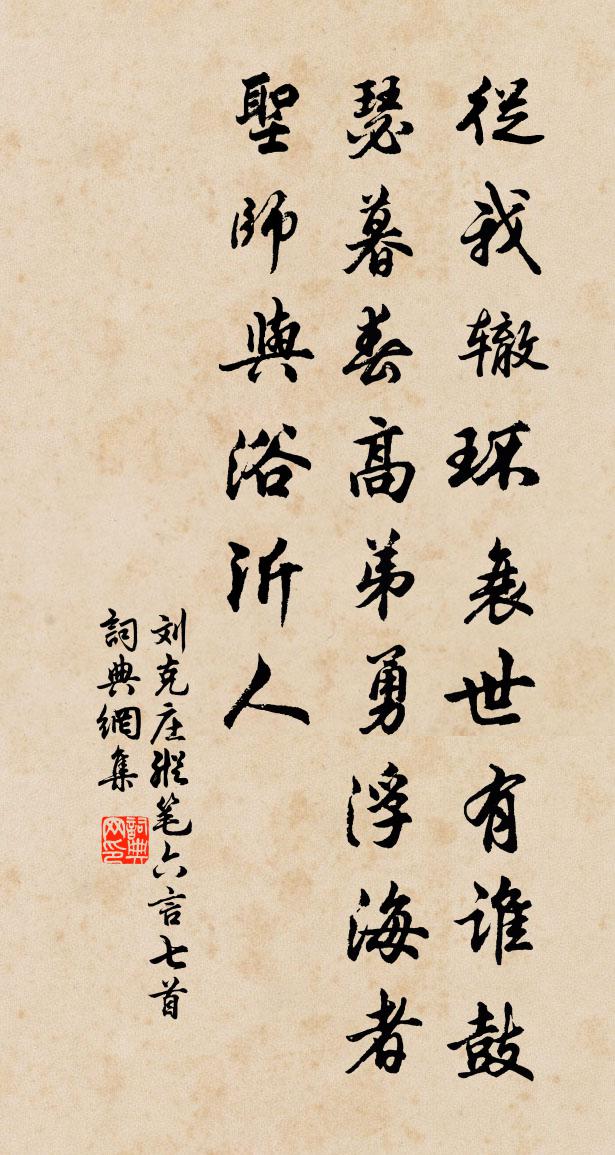 從我辙环衰世有谁鼓
瑟暮春高弟勇浮海者
聖師與浴沂人
刘克庄縱笔六言七首
詞典網集
詞典网印